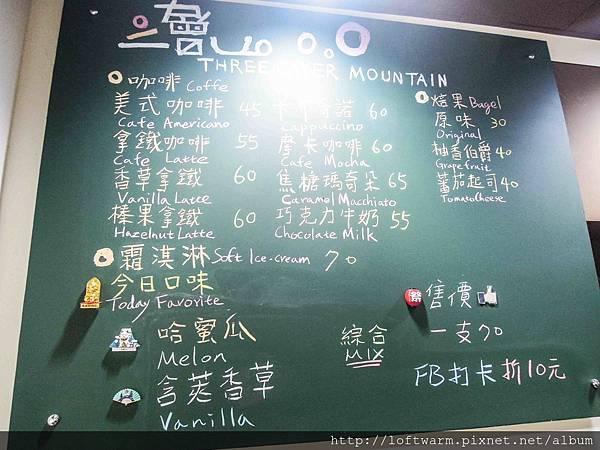 THREE MOUNTAIN
咖啡 Coffe
美式咖啡 45
Cafe Americano
拿鐵咖啡 55
Cafe Latte
香草拿鐵 60
Vanilla Latte
榛果拿鐵 60
Hazelnut Latte
卡布奇諾 60
Cappuccino
摩卡咖啡 60
Cafe Mocha
焦糖瑪奇朵 65
Caramel Macchiato
巧克力牛奶 55
Chocolate Milk
焙果 Bagel
原味 30
Original
柚香伯爵 40
Grapefruit
蕃茄起司 40
Tomato Cheese
霜淇淋 Soft Ice-cream 70
今日口味
Today Favorite
哈蜜瓜
Melon
含莢香草
Vanilla
綜合
MIX
售價
一支70
FB打卡折10元
http://loftwarm.pixnet.net/album